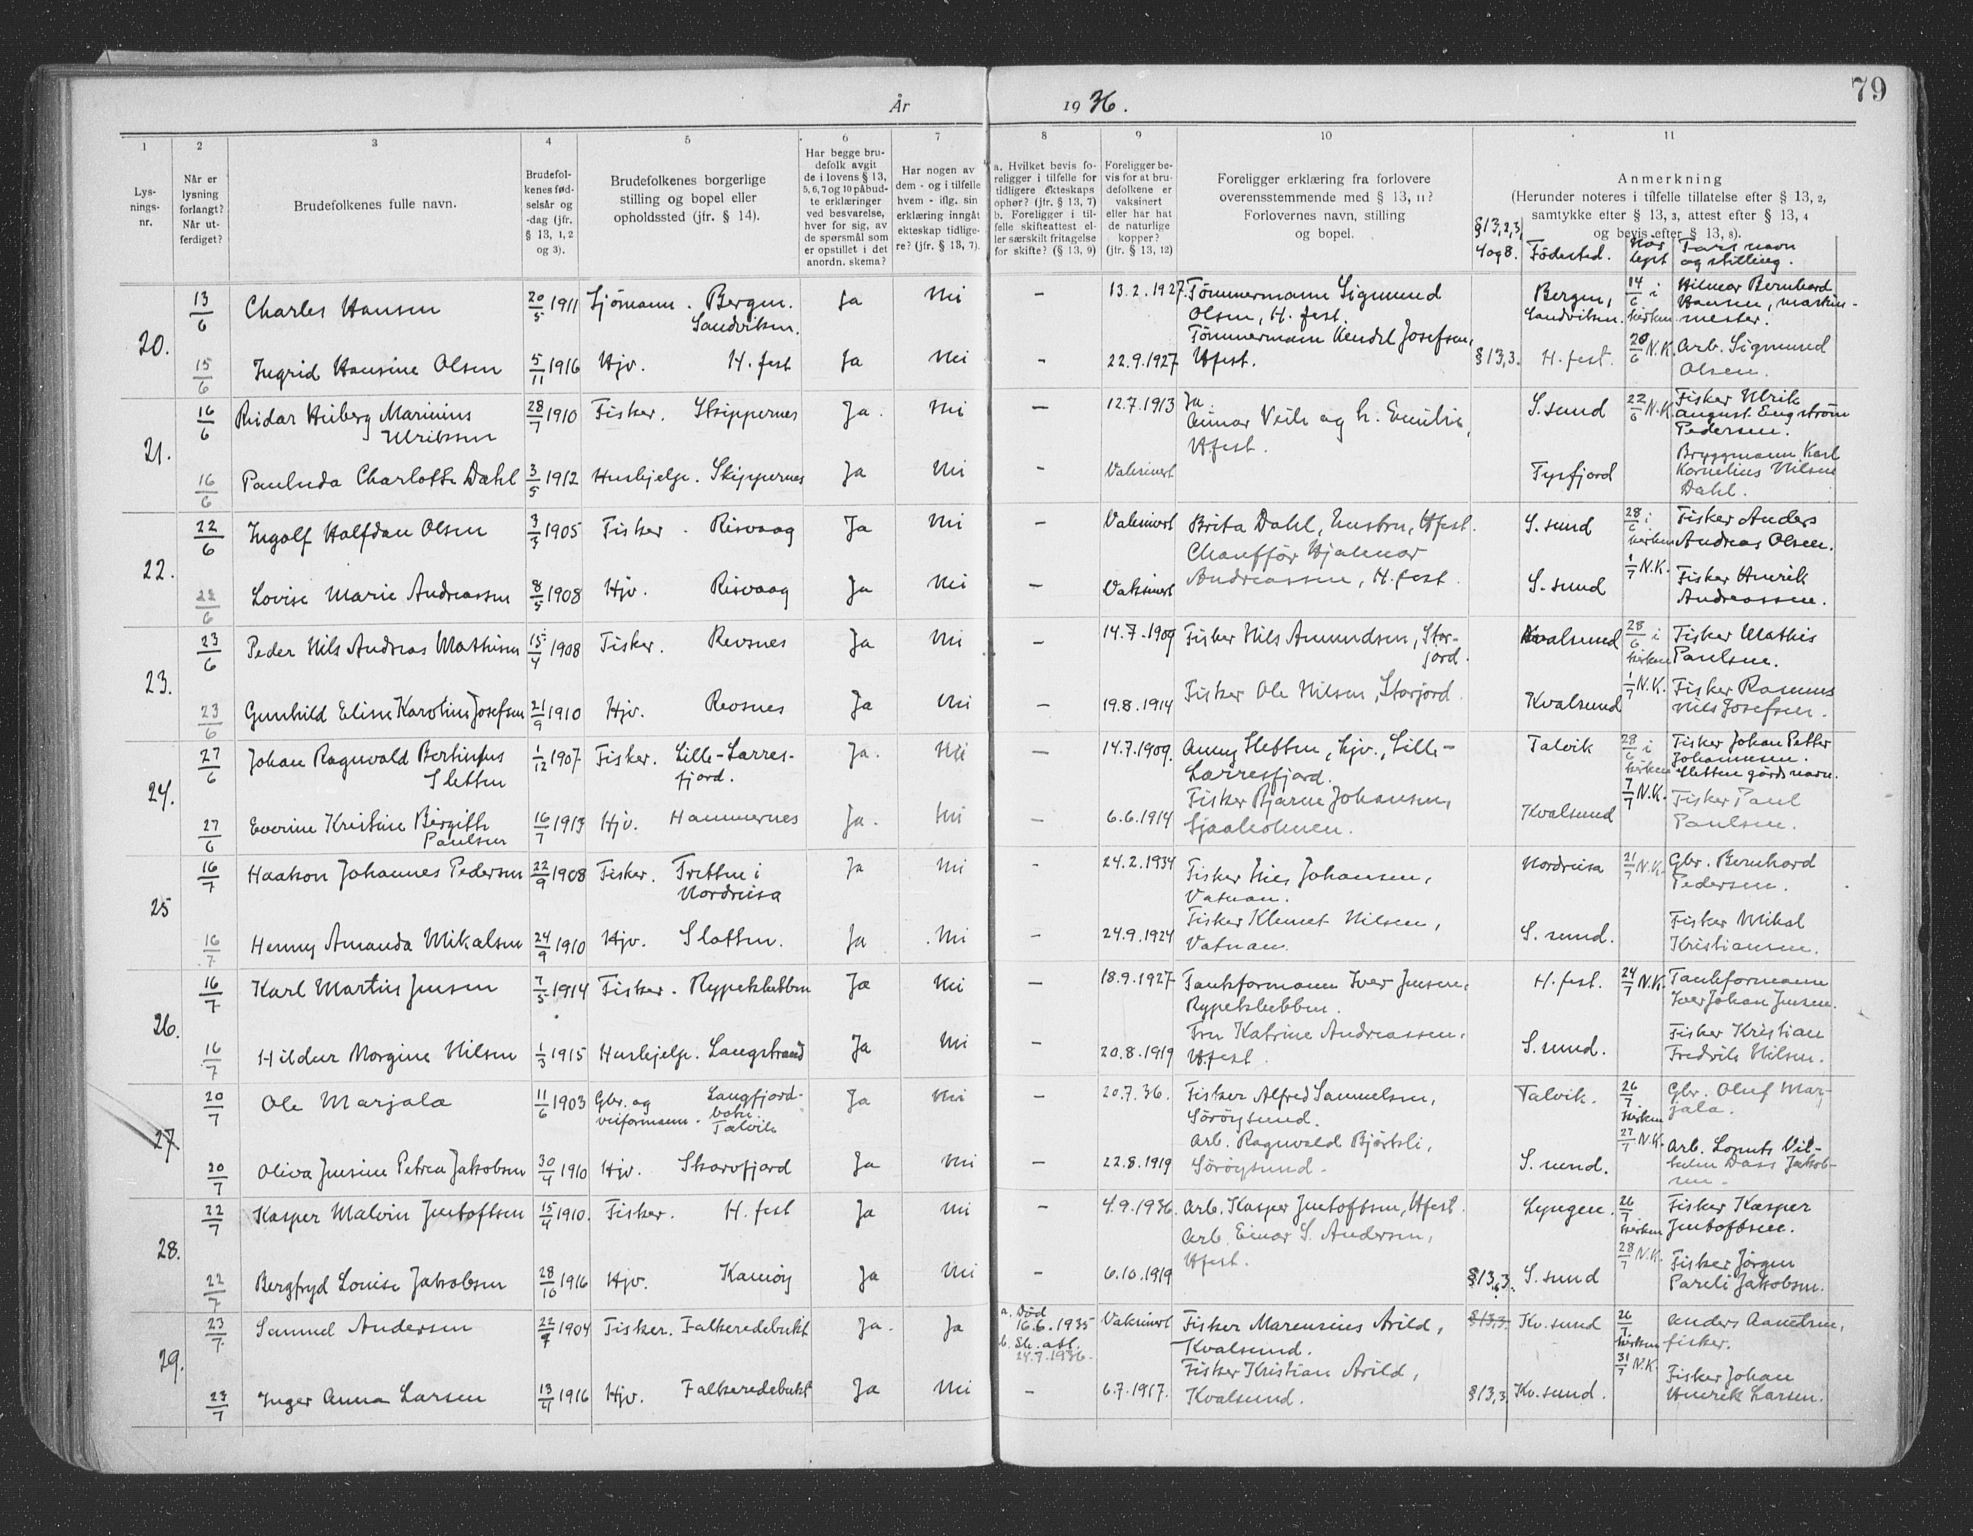 79
År 1936.
1 2 3 4 5 6 7 8 9 10 11
Lys-
nings-
nr.
Når er
lysning
forlangt?
Når ut-
ferdiget?
Brudefolkenes fulle navn.
Brudefol-
kenes fød-
selsår og
-dag (jfr.
§ 13, 1, 2
og 3).
Brudefolkenes borgerlige
stilling og bopel eller
opholdssted (jfr. § 14).
Har begge bru-
defolk avgit
de i lovens § 13,
5, 6, 7 og 10 påbud-
te erklæringer
ved besvarelse,
hver for sig, av
de spørsmål som
er opstillet i det
anordn. skema?
Har nogen av
dem - og i tilfelle
hvem - iflg. sin
erklæring inngått
ekteskap tidlige-
re? (jfr. § 13, 7).
a. Hvilket bevis fo-
religger i tilfelle for
tidligere ekteskaps
ophør? (jfr. § 13, 7)
b. Foreligger i til-
felle skifteattest el-
ler særskilt fritagelse
for skifte? (§ 13, 9)
Foreligger be-
vis for at bru-
defolkene er
vaksinert
eller har hat
de naturlige
kopper?
(jfr. § 13, 12)
Foreligger erklæring fra forlovere
overensstemmende med § 13, 11?
Forlovernes navn, stilling
og bopel.
Anmerkning
(Herunder noteres i tilfelle tillatelse efter § 13, 2,
samtykke efter § 13, 3, attest efter § 13, 4
og bevis efter § 13, 8).
§13,2,3,
4og8. Fødested. Når lyst Fars navn
og stilling.
20.
13/6 Charles Hansen 20/5 1911 Sjömann. Bergen. Sandviken. Ja Nei - 13.2.1927. Tömmermann Sigmund
Olsen, H.fest. Bergen, Sandviken. 14/6 i kirken Hilmar Bernhard
Hansen, maskin-
mester.
15/6 Ingrid Hansine Olsen 5/11 1916 Hjv. H.fest Ja Nei - 22.9.1927 Tömmermann Hendel Josefsen,
Hfest. §13,3. H.fest. 20/6 N.K. Arb. Sigmund
Olsen.
21.
16/6 Reidar Heiberg Marinius
Ulriksen 28/7 1910 Fisker. Skippernes Ja. Nei - 12.7.1913 Ja.
Einar Veile og h. Emilie,
Hfest. S.sund 22/6 N.K. Fisker Ulrik
August Engström
Pedersen.
16/6 Paulnda Charlotte Dahl 3/5 1912 Hushjelp. Skippernes Ja Nei - Vaksinert Tysfjord Bryggmann Karl
Kornelius Nilsen
Dahl.
22.
22/6 Ingolf Halfdan Olsen 3/3 1905 Fisker. Risvaag Ja Nei - Vaksinert Brita Dahl, hustru, Hfest. S.sund 28/6 i kirken Fisker Anders
Andreas Olsen.
22/6 Lovise Marie Andreassen 8/5 1908 Hjv. Risvaag Ja Nei - Vaksinert Chaufför Hjalmar
Andreassen, H.fest. S.sund 1/7 N.K. Fisker Henrik
Andreassen.
23.
23/6 Peder Nils Andreas Mathisen 15/4 1908 Fisker. Revsnes Ja Nei - 14.7.1909 Fisker Nils Amundsen, Stor-
jord. Kvalsund 28/6 i kirken Fisker Mathis
Paulsen.
23/6 Gunhild Eline Karoline Josefsen 21/9 1910 Hjv. Revsnes Ja Nei - 19.8.1914 Fisker Ole Nilsen, Storjord. Kvalsund 1/7 N.K. Fisker Rasmus
Nils Josefsen.
24.
27/6 Johan Ragnvald Bertinius
Sletten 1/12 1907 Fisker. Lille-Lærres-
fjord. Ja. Nei - 14.7.1909. Anny Sletten, hjv., Lille-
Lærresfjord. Talvik 28/6 i kirken Fisker Johan Petter
Johannesen.
Sletten gårdsnavn.
27/6 Everine Kristine Birgitte
Paulsen 16/7 1913 Hjv. Hammernes Ja. Nei - 6.6.1914 Fisker Bjarne Johansen,
Sjaaholmen. Kvalsund 7/7 N.K. Fisker Paul
Paulsen.
25
16/7 Haakon Johannes Pedersen 22/9 1908 Fisker. Tretten i
Nordreisa Ja Nei - 24.2.1934 Fisker Nies Johansen,
Vatnan. Nordreisa 21/7 N.K. Gbr. Bernhard
Pedersen.
16/7 Henny Amanda Mikalsen 24/9 1910 Hjv. Slotten. Ja Nei - 24.9.1924 Fisker Klemet Nilsen,
Vatnan. S.sund. Fisker Mikal
Kristiansen.
26.
16/7 Karl Martin Jensen 7/5 1914 Fisker. Rypeklubben Ja Nei - 18.9.1927 Tankformann Iver Jensen,
Rypeklubben. H.fest. 24/7 N.K. Tankformann
Iver Johan Jensen.
16/7 Hildur Morgine Nilsen 1/3 1915 Hushjelp. Langstrand Ja Nei - 20.8.1919 Fru Katrine Andreassen,
Hfest. S.sund. Fisker Kristian
Fredrik Nilsen.
27
20/7 Ole Marjala 11/6 1903 Gbr. og
veiformann. Langfjord-
botn.
Talvik Ja Nei - 20.7.36. Fisker Alfred Samuelsen,
Söröysund. Talvik. 26/7 kirken Gbr. Oluf Mar-
jala.
20/7 Oliva Jensine Petrea Jakobsen 30/4 1910 Hjv. Skarvfjord Ja Nei - 22.8.1919 Arb. Ragnvald Bjørkli,
Söröysund. S.sund. 27/7 N.K. Arb. Lorents Vil-
helm Dass Jakob-
sen.
28.
22/7 Kasper Malvin Jentoftsen 15/4 1910. Fisker. H.fest Ja Nei - 4.9.1936. Arb. Kasper Jentoftsen, Hfest. Lyngen. 26/7 kirken Fisker Kasper
Jentoftsen.
22/7 Bergfryd Louise Jakobsen 28/10 1916 Hjv. Kamöy Ja Nei - 6.10.1919 Arb. Einar S. Andersen,
Hfest. §13,3. S.sund 28/7 N.K. Fisker Jörgen
Pareli Jakobsen.
29.
23/7 Samuel Andersen 22/7 1904 Fisker. Falkeredebukt Ja. Ja a. Död
16.6.1935
b. Sk.att.
24.7.1936. Vaksinert Fisker Marensius Arild,
Kvalsund. §13,3. Kv.sund 26/7 kirken Anders Aanetsen,
fisker.
23/7 Inger Anna Larsen 13/4 1916 Hjv. Falkeredebukt Ja Nei - 6.7.1917. Fisker Kristian Arild,
Kvalsund. §13,3 Kv.sund. 31/7 N.K. Fisker Johan
Henrik Larsen.